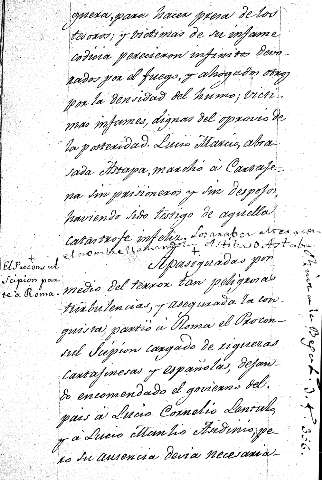 guera, para hacer presa de los
tesoros; y victimas de su infame
codicia perecieron infinitos devo-
rados por el fuego, y ahogados otros
por la densidad del humo; victi-
mas infames, dignas del oprovio de
la posteridad. Lucio Marcio, abra-
sada Astapa, marchó á Cartaje-
na sin prisioneros y sin despojos,
haviendo sido testigo de aquella
catástrofe infeliz. Los arabes
el nombre
El Proconsul
Scipion par-
te á Roma.
Apasiguadas por
medio del terror tan peligrosas
turbulencias, y asegurada la con-
quista partió á Roma el Procon-
sul Scipion cargado de riquezas
cartaginesas y españolas, dejan-
do encomendado el govierno del
pais á Lucio Cornelio Lentulo,
y á Lucio Manlio Audinio; pe-
ro su ausencia devia necesaria-